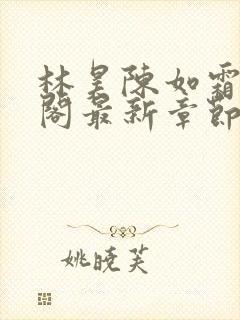 林昊陳如霜
閣最新章節
姚曉芙